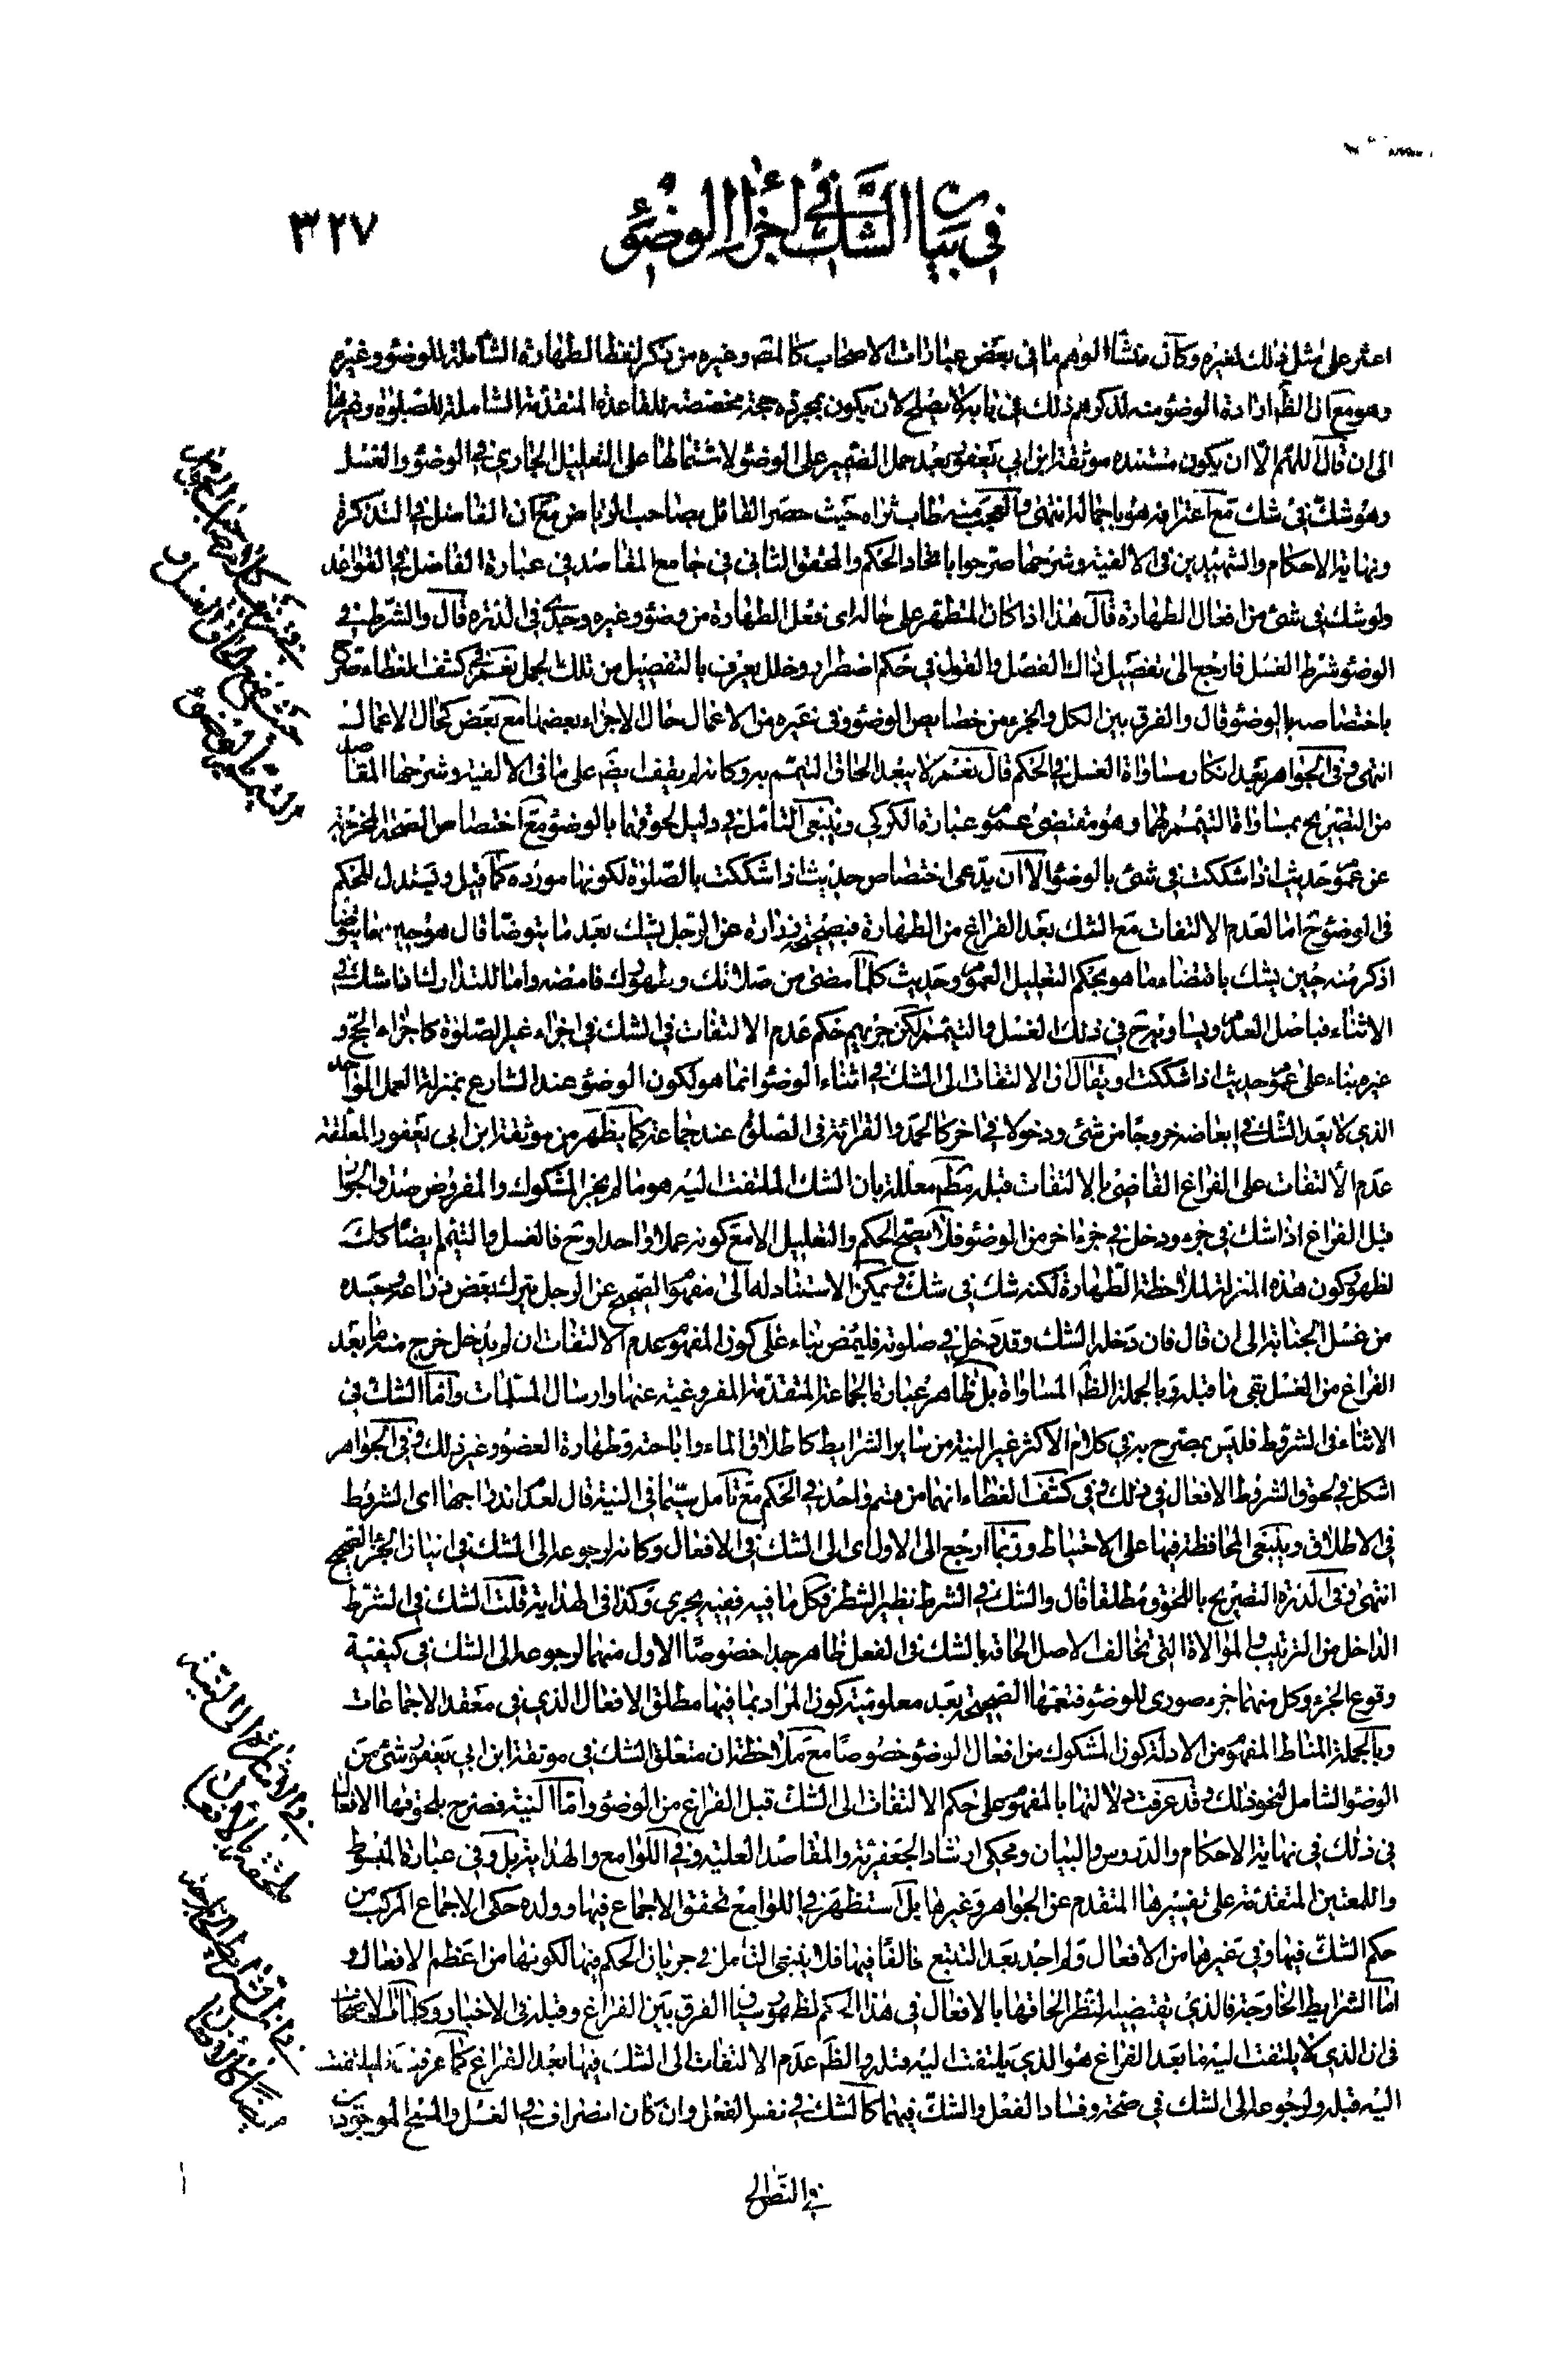 في بيان الشك في أجزاء الوضوء
٣٢٧
اعثر على مثل ذلك لغيره وكان منشأ الوهم ما في بعض عبارات الاصحاب كالمصه وغيره من ذكر لفظ الطهارة الشاملة للوضوء وغيره
وهو مع ان الظ ارادة الوضوء منه لذكرهم ذلك في بابه لا يصلح لان يكون بمجرده حجة مخصصة للقاعدة المتقدمة الشاملة للصلوة وغيرها
الى ان قال اللهم الا ان يكون مستنده موثقة ابن ابي يعفور بعد حمل الضمير على الوضوء لاشتمالها على التعليل الجاري في الوضوء والغسل
وهو شك في شك مع اعترافه هو باجماله انتهى والعجب منه طاب ثراه حيث حصر القائل بصاحب الرياض مع ان الفاضل في التذكرة
ونهاية الاحكام والشهيدين في الالفية وشرحها صرحوا باتحاد الحكم والمحقق الثاني في جامع المقاصد في عبارة الفاضل في القواعد
ولو شك في شئ من افعال الطهارة قال هذا اذا كان المتطهر على حاله اى فعل الطهارة من وضوء وغيره وحكى في الدرة قال والشرط في
الوضوء شرط الغسل فارجع الى تفصيل ذاك الفصل والقول في حكم اضطرار وخلل يعرف بالتفصيل من تلك الجمل نعم في كشف الغطاء صرح
باختصاصه بالوضوء قال والفرق بين الكل والجزء من خصايص الوضوء وفي غيره من الاعمال حال الاجزاء بعضها مع بعض كحال الاعمال
انتهى وفي الجواهر بعد انكار مساواة الغسل في الحكم قال نعم لا يبعد الحاق التيمم به وكانه لم يقف على ما في الالفية وشرحها المقاصد
من التصريح بمساواة التيمم لهما وهو مقتضى عموم عبارة الكركي وينبغي التامل في دليل لحوقهما بالوضوء مع اختصاص الصحيحة المخرجة
عن عموم حديث اذا شككت في شئ بالوضوء الا ان يدعى اختصاص حديث اذا شككت بالصلوة لكونها مورده كما قيل ويستدل للحكم
في الوضوء ح اما لعدم الالتفات مع الشك بعد الفراغ من الطهارة فبصحيحة زرارة عن الرجل يشك بعد ما يتوضا قال هو حين ما يتوضا
اذكر منه حين يشك باقتضاء ما هو بحكم التعليل العموم وحديث كلما مضى من صلاتك وطهورك فامضه واما للتدارك اذا شك في
الاثناء فباصل العدم ويساويه ح في ذلك الغسل والتيمم لكن جزمهم حكم عدم الالتفات في الشك في اجزاء غير الصلوة كاجزاء الحج و
غيره بناء على عموم حديث اذا شككت ويقال ان الالتفات الى الشك في اثناء الوضوء انما هو لكون الوضوء عند الشارع بمنزلة العمل الواحد
الذي لا يعد الشك في ابعاضه خروجا من شئ ودخولا في اخر كالحمد والقرائة في الصلوة عند جماعة كما يظهر من موثقة ابن ابي يعفور المعلقة
عدم الالتفات على الفراغ القاضي بالالتفات قبله معللة بان الشك الملتفت اليه هو ما لم يجز المشكوك والمفروض صدق الجواز
قبل الفراغ اذا شك في جزء ودخل في جزء اخر من الوضوء فلا يصح الحكم والتعليل الا مع كونه عملا واحدا وح فالغسل والتيمم ايضا كك
لظهور كون هذه المنزلة لملاحظة الطهارة لكنه شك في شك ويمكن الاستناد له الى مفهوم الصحيح عن الرجل ترك بعض ذراعه وجسده
من غسل الجنابة الى ان قال فان دخله الشك وقد دخل في صلوته فليمض بناء على كون المفهوم عدم الالتفات ان لم يدخل خرج منه ما بعد
الفراغ من الغسل بقى ما قبله وبالجملة الظ المساواة بل ظاهر عبارة الجماعة المتقدمة المفروغية عنها وارسال المسلمات واما الشك في
الاثناء في الشروط فليس بمصرح به في كلام الاكثر غير النية من ساير الشرايط كاطلاق الماء واباحته وطهارة العضو وغير ذلك وفي الجواهر
اشكل في لحوق الشروط الافعال في ذلك وفي كشف الغطاء انهما من قسم واحد في الحكم مع تامل سيما في النية قال لعدم اندراجها اى الشروط
في الاطلاق وينبغي المحافظة فيها على الاحتياط وربما ارجع الى الاول اى الى الشك في الافعال وكانه لرجوعه الى الشك في اتيان الجزء الصحيح
انتهى وفي الدرة التصريح باللحوق مطلقا قال والشك في الشرط نظير الشطر فكل ما فيه ففيه يجرى وكذا في الهداية قلت الشك في الشرط
الداخل من الترتيب والموالاة التي تخالف الاصل الحاقه بالشك في الفعل ظاهر جدا خصوصا الاول منهما لرجوعه الى الشك في كيفية
وقوع الجزء وكل منهما جزء صوري للوضوء فتعمها الصحيحة بعد معلومية كون المراد بما فيها مطلق الافعال الذي في معقد الاجماعات
وبالجملة المناط المفهوم من الادلة كون المشكوك من افعال الوضوء خصوصا مع ملاحظة ان متعلق الشك في موثقة ابن ابي يعفور شئ من
الوضوء الشامل لنحو ذلك وقد عرفت دلالتها بالمفهوم على حكم الالتفات الى الشك قبل الفراغ من الوضوء واما النية فصرح بلحوقها الافعال
في ذلك في نهاية الاحكام والدروس والبيان ومحكى ارشاد الجعفرية والمقاصد العلية وفي اللوامع والهداية بل وفي عبارة المبسوط
واللمعتين المتقدمة على تفسيرها المتقدم عن الجواهر وغيرها بل استظهر في اللوامع تحقق الاجماع فيها وولده حكى الاجماع المركب من
حكم الشك فيها وفي غيرها من الافعال ولم اجد بعد التتبع مخالفا فيها فلا ينبغي التامل في جريان الحكم فيها لكونها من اعظم الافعال و
اما الشرايط الخارجة فالذي يقتضيه النظر الحاقها بالافعال في هذا الحكم لظهور سياق الفرق بين الفراغ وقبله في الاخبار وكلمات الاصحاب
في ان الذي لا يلتفت اليه ما بعد الفراغ هو الذي يلتفت اليه قبله والظ عدم الالتفات الى الشك فيها بعد الفراغ كما عرفت فيلتفت
اليه قبله ولرجوعه الى الشك في صحته وفساد الفعل والشك فيهما كالشك في نفس الفعل وان كان انصراف في الغسل والمسح الموجودين
في النص الى